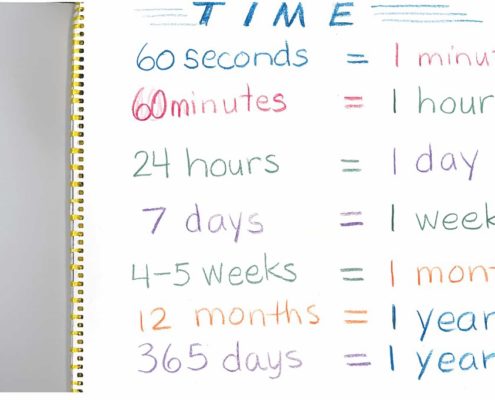 TIME
60 seconds = 1 minu
60 minutes = 1 hour
24 hours = 1 day
7 days = 1 week
4-5 weeks = 1 mon
12 months = 1 year
365 days = 1 year